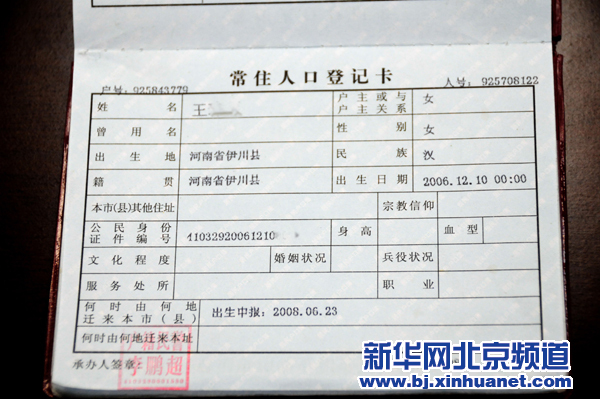 常住人口登记卡
户号: 925843779 人号: 925708122
姓名 王 户主或与户主关系 女
曾用名 性别 女
出生地 河南省伊川县 民族 汉
籍贯 河南省伊川县 出生日期 2006.12.10 00:00
本市(县)其他住址 宗教信仰
公民身份证件编号 41032920061210 身高 血型
文化程度 婚姻状况 兵役状况
服务处所 职业
何时由何地迁来本市(县) 出生申报: 2008.06.23
何时由何地迁来本址
承办人签章:
户籍民警
李鹏超
新华网北京频道
www.bj.xinhuanet.com